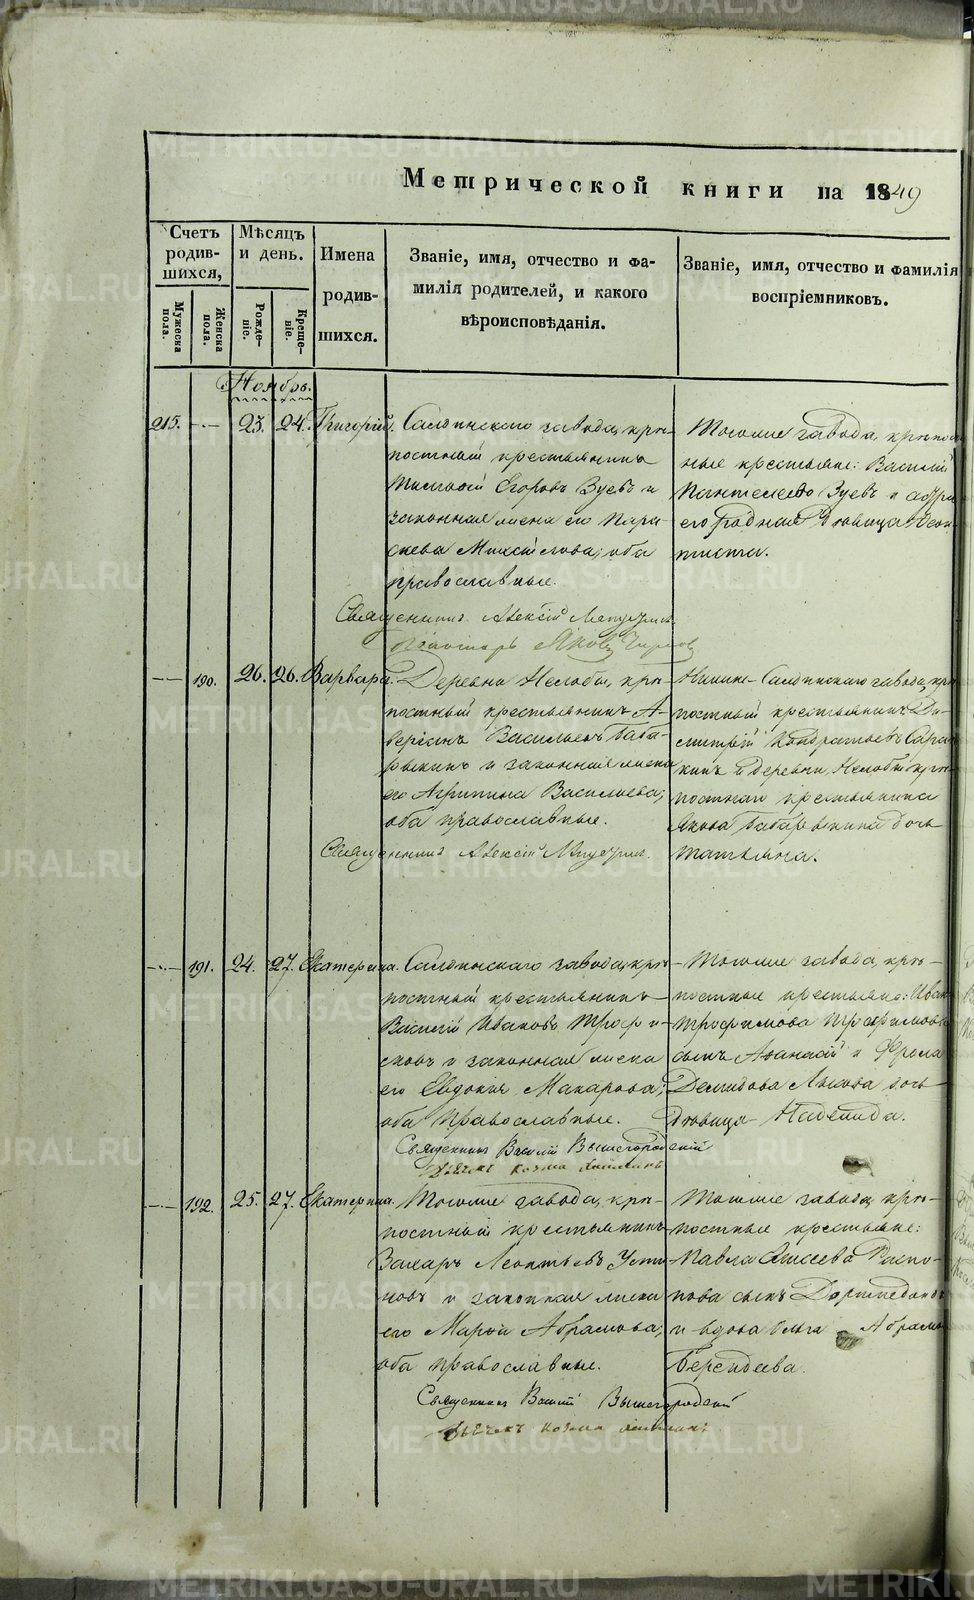 METRIKI.GASO-URAL.RU
Метрической книги на 1849
Счетъ родив-шихся,
Мужеска пола.
Женска пола.
Мѣсяцъ и день.
Рожде-ніе.
Креще-ніе.
Имена родив-шихся.
Званіе, имя, отчество и фа-
милія родителей, и какого
вѣроисповѣданія.
Званіе, имя, отчество и фамилія
воспріемниковъ.
Ноябрь.
215. — 23. 24. Григорій.
Салдинскаго завода, крѣ-
постный крестьянинъ
Егоровъ Зуевъ и
законная жена его Пара-
скева оба
православные.
Священникъ Алексій
Яковъ
Тогоже завода, крѣпост
ные крестьяне: Василій
Пантелеевъ Зуевъ и
его родная дѣвица
— 190. 26. 26. Варвара.
Деревни Нелобы, крѣ-
постный крестьянинъ А-
веріанъ Васильевъ Баба-
рыкинъ и законная жена
его Агрипина Васильева;
оба православные.
Священникъ Алексій
Нижне-Салдинскаго завода, крѣ
постный крестьянинъ Ди-
митрій Кондратьевъ
и деревни Нелобы крѣ
постнаго крестьянина
Якова Бабарыкина дочь
Татьяна.
— 191. 24. 27. Екатерина.
Салдинскаго завода, крѣ-
постный крестьянинъ
Василій Ивановъ Трофи-
мовъ и законная жена
его Евдокія Макарова;
оба православные.
Священникъ Василій Вышегородскій
дьячекъ Козма
Тогоже завода, крѣ-
постные крестьяне: Иван
Трофимова Трофимова
сынъ Афанасій и Фрола
Демидова Лысова дочь
дѣвица Надежда.
— 192. 25. 27. Екатерина.
Тогоже завода, крѣ-
постный крестьянинъ
Захаръ Леонтьевъ Усти-
новъ и законная жена
его Марѳа Абрамова;
оба православные.
Священникъ Василій Вышегородскій
дьячекъ Козма
Тогоже завода, крѣ-
постные крестьяне:
Павла Распо-
пова сынъ Дормедонтъ
и вдова Ольга Абрамо
Берендеева.